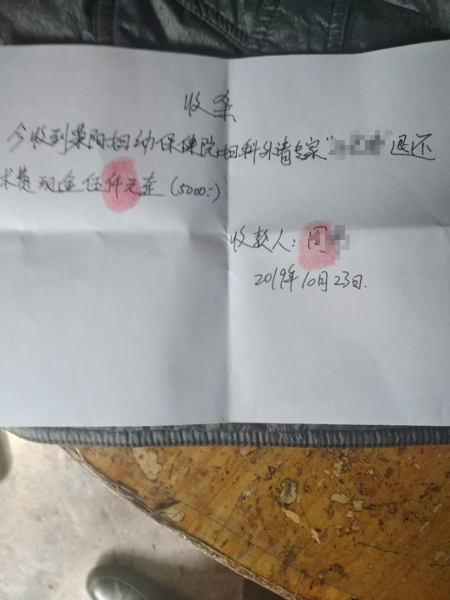 收条
今收到荥阳妇幼保健院妇科外请专家“ ”退还
术费现金伍仟元整(5000.-)
收款人:
2019年10月23日.